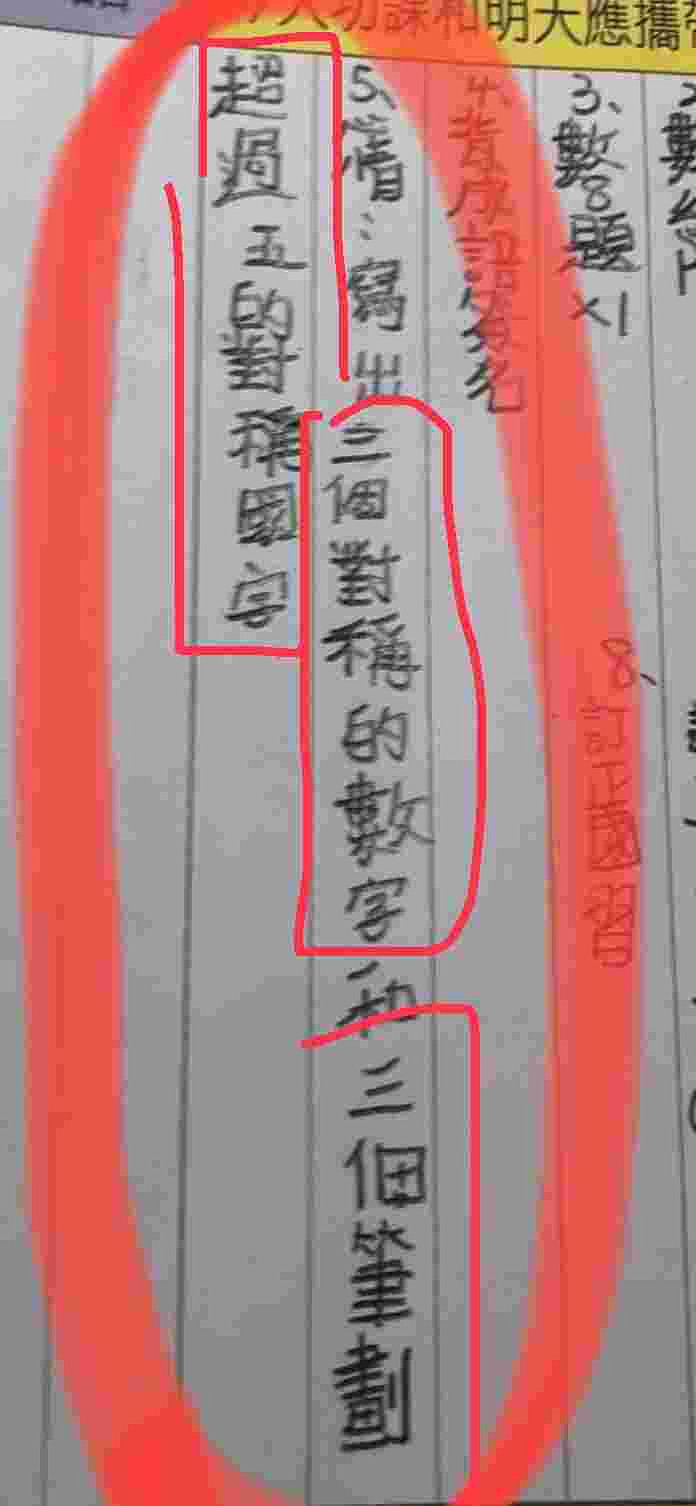 人功課和明天應攜帶
3、數8題×1
8、訂正國習
4、背成語簽名
5、準備：寫出三個對稱的數字和三個筆劃
超過五的對稱國字